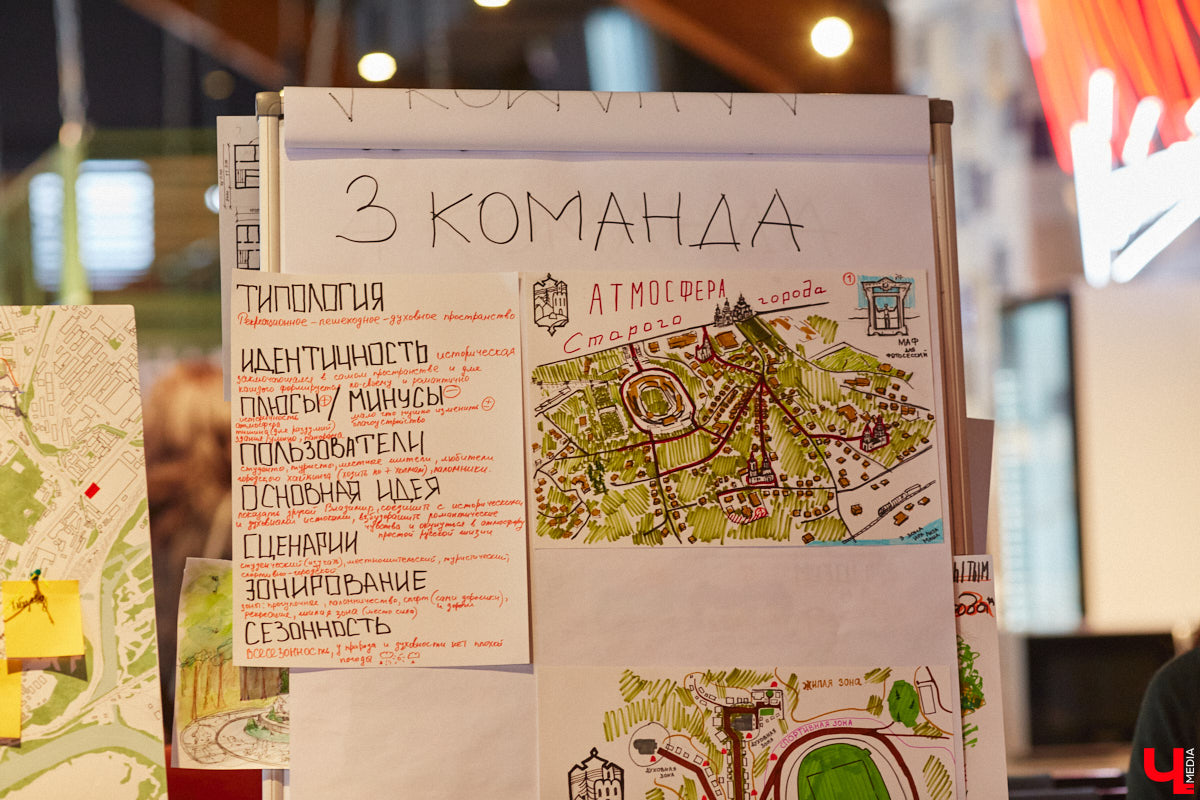 3 КОМАНДА
ТИПОЛОГИЯ
Рекреационное – пешеходное – духовное пространство
ИДЕНТИЧНОСТЬ историческая
заключающаяся в самом пространстве и для
каждого формируется по-своему и романтично
ПЛЮСЫ+/МИНУСЫ−
историчность мало что нужно изменить +
атмосфера благоустройство
тишина (для раздумий)
здания
ПОЛЬЗОВАТЕЛИ
студенты, туристы, местные жители, любители
городского хайкинга (ходить по + холмам), паломники.
ОСНОВНАЯ ИДЕЯ
показать другой Владимир, соединить с историческими
и духовными истоками, взбудоражить романтические
чувства и окунуться в атмосферу
простой русской жизни
СЦЕНАРИИ
студенческий (изучать), местножительский, туристический,
спортивно-городской
ЗОНИРОВАНИЕ
зоны: прогулочная, паломничество, спорт (сами дорожки),
рекреация, жилая зона (место силы) и дороги
СЕЗОННОСТЬ
всесезонность, у природы и духовности нет плохой
погоды
АТМОСФЕРА
Старого города
1
МАФ
для
фотосессий
ЖИЛАЯ ЗОНА
СПОРТИВНАЯ ЗОНА
ДУХОВНАЯ
ЗОНА
ДУХОВНАЯ
ЗОНА
Ч
MEDIA